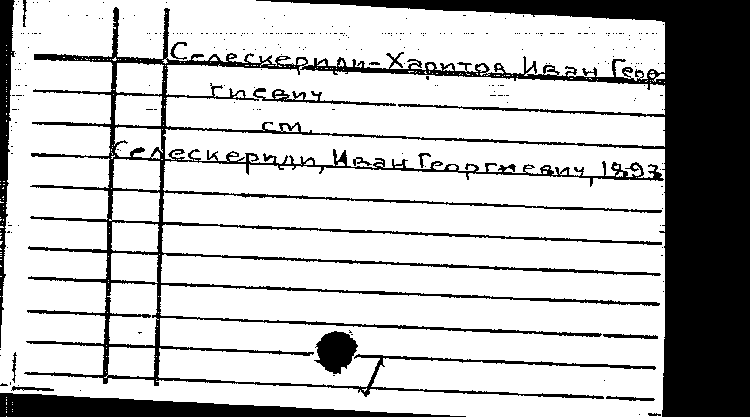 Селескериди-Харитов, Иван Геор-
гиевич
см.
Селескериди, Иван Георгиевич, 1897